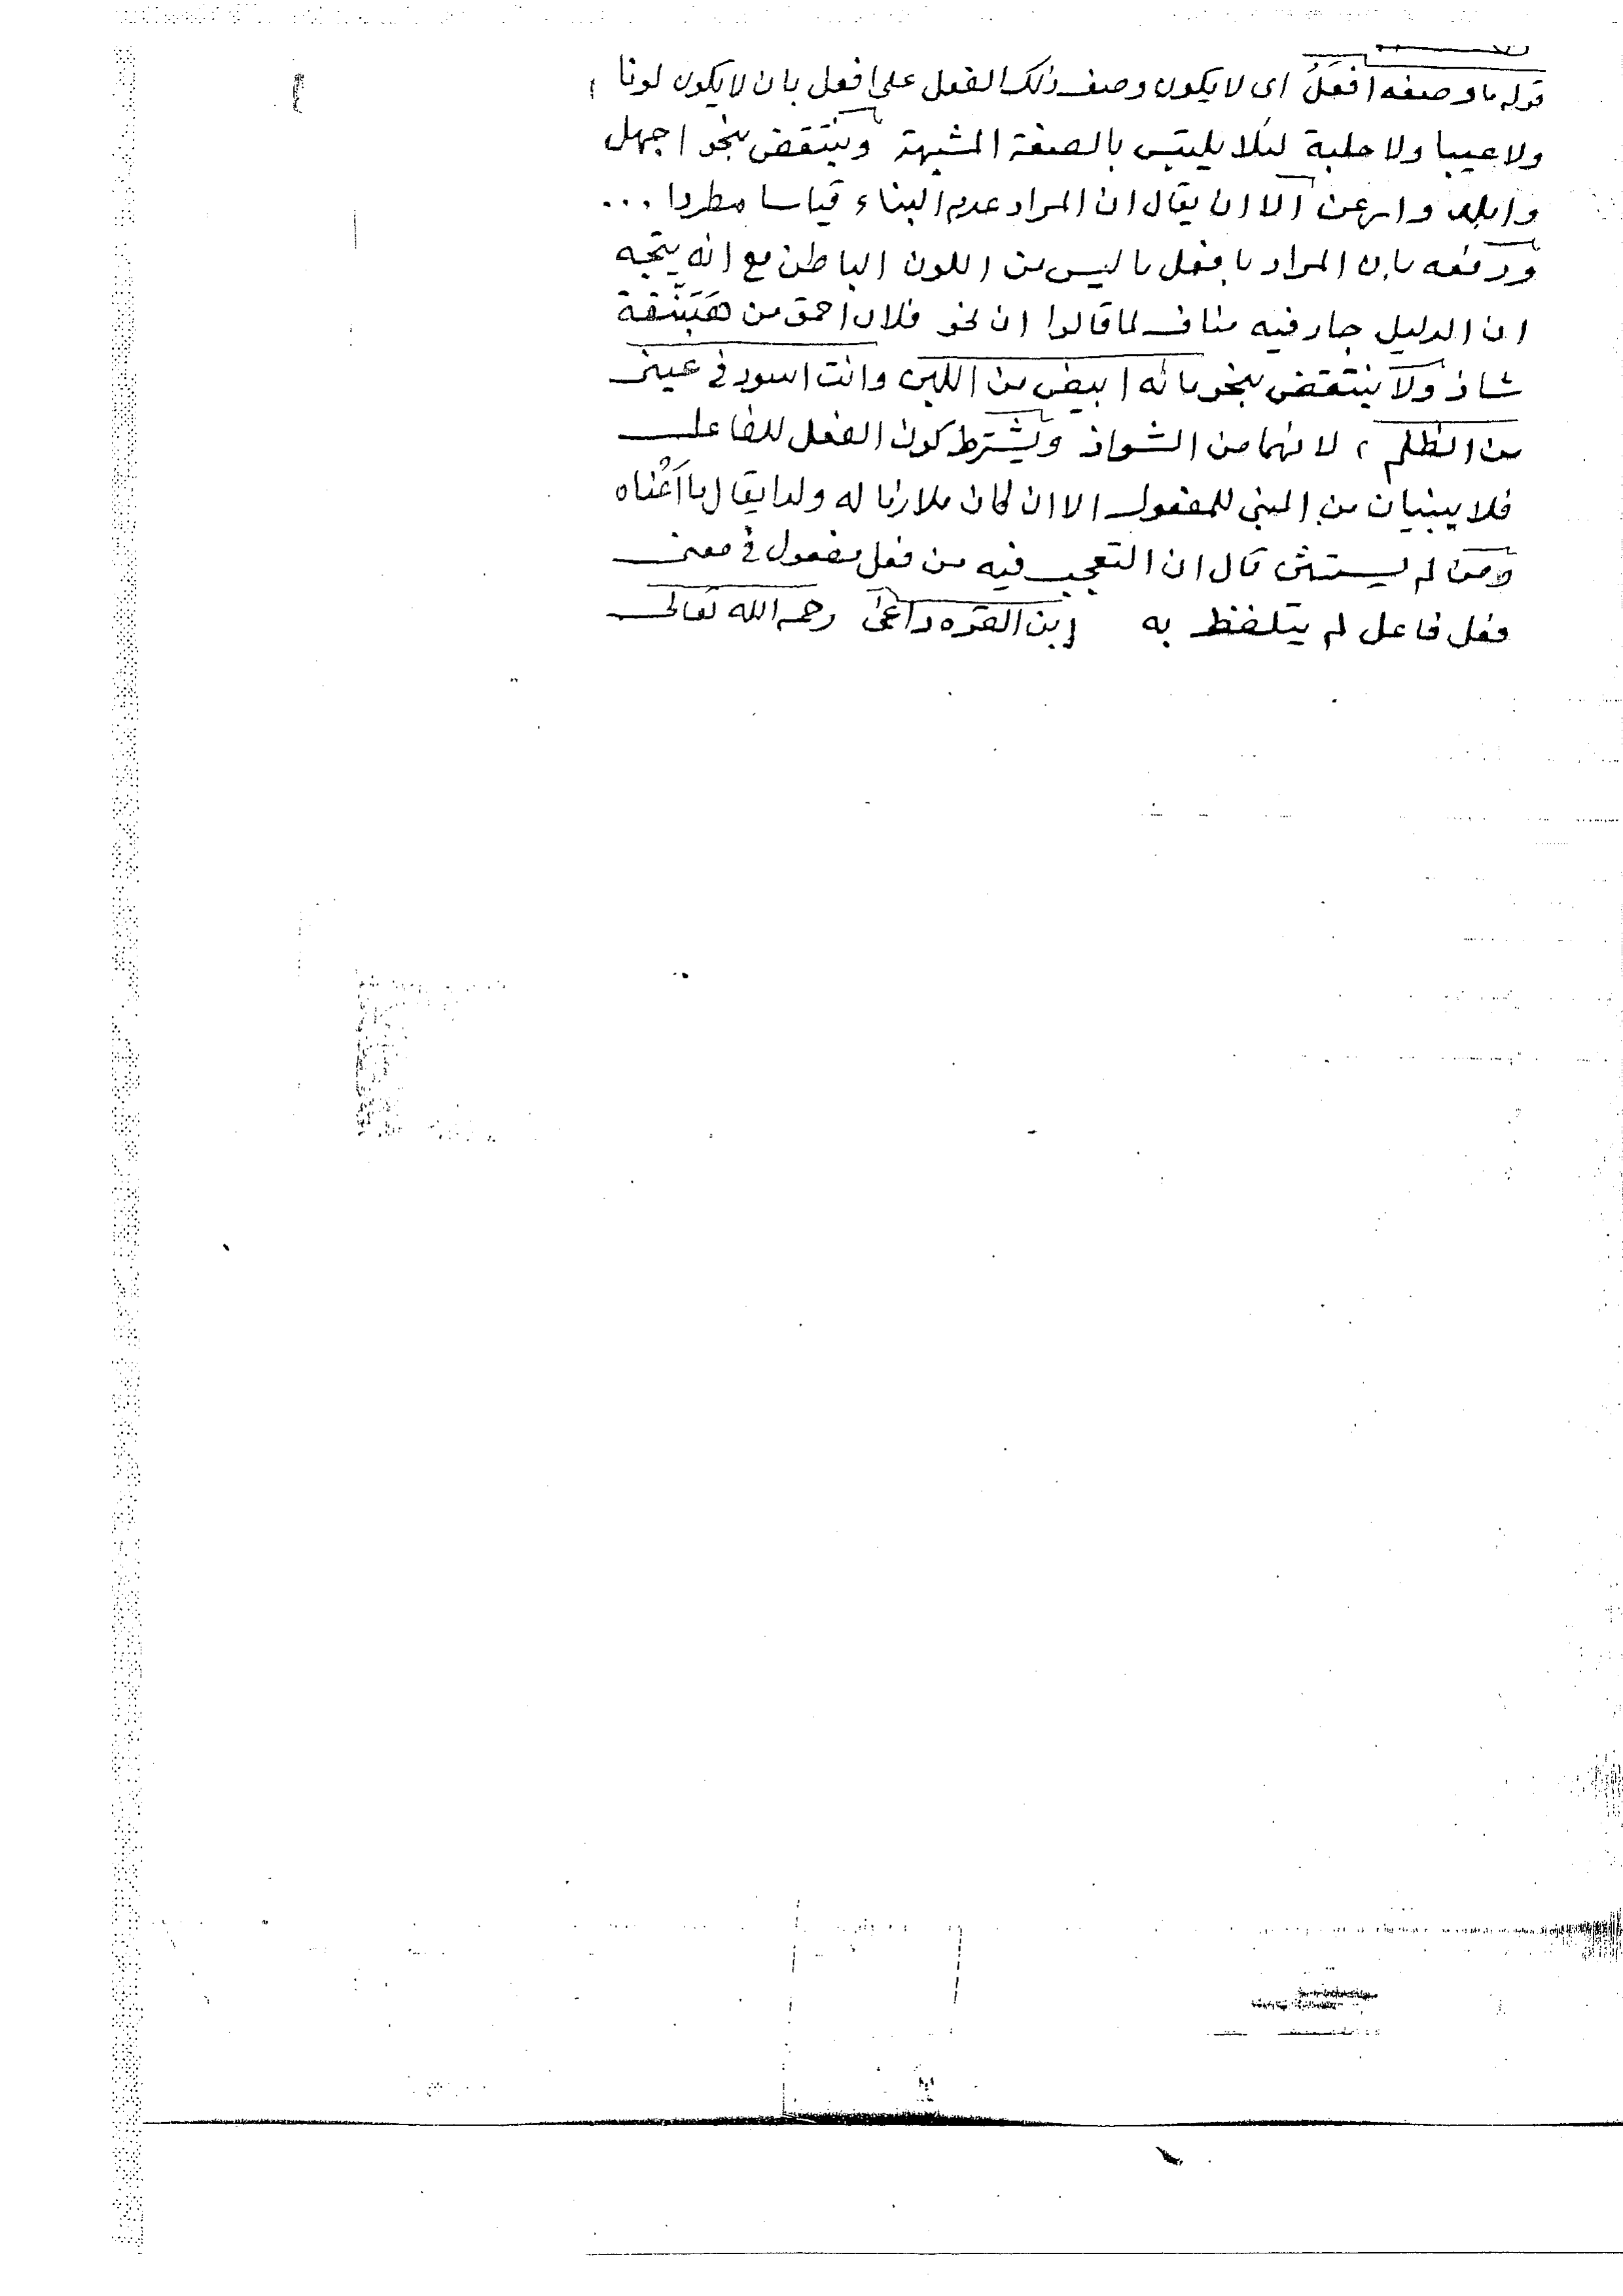 قوله ما وصفه افعَلُ اى لا يكون وصف ذلك الفعل على افعل بان لا يكون لونا
ولا عيبا ولا حلية لئلا يلتبس بالصفة المشبهة وينتقض بنحو اجهل
وابلد وارعن الا ان يقال ان المراد عدم البناء قياسا مطردا ...
ودفعه بان المراد بافعل ما ليس من اللون الباطن مع انه يتجه
ان الدليل جار فيه مناف لما قالوا ان نحو فلان احمق من هَبَنَّقة
شاذ ولا ينتقض بنحو مائه ابيض من اللبن وانت اسود فى عينى
من الظلم ، لانهما من الشواذ ويشترط كون الفعل للفاعل
فلا يبنيان من المبنى للمفعول الا ان كان ملازما له ولذا يقال ما اَعْناه
ومن لم يستثن قال ان التعجب فيه من فعل مفعول فى معنى
فعل فاعل لم يتلفظ به ابن القره داغى رحمه الله تعالى